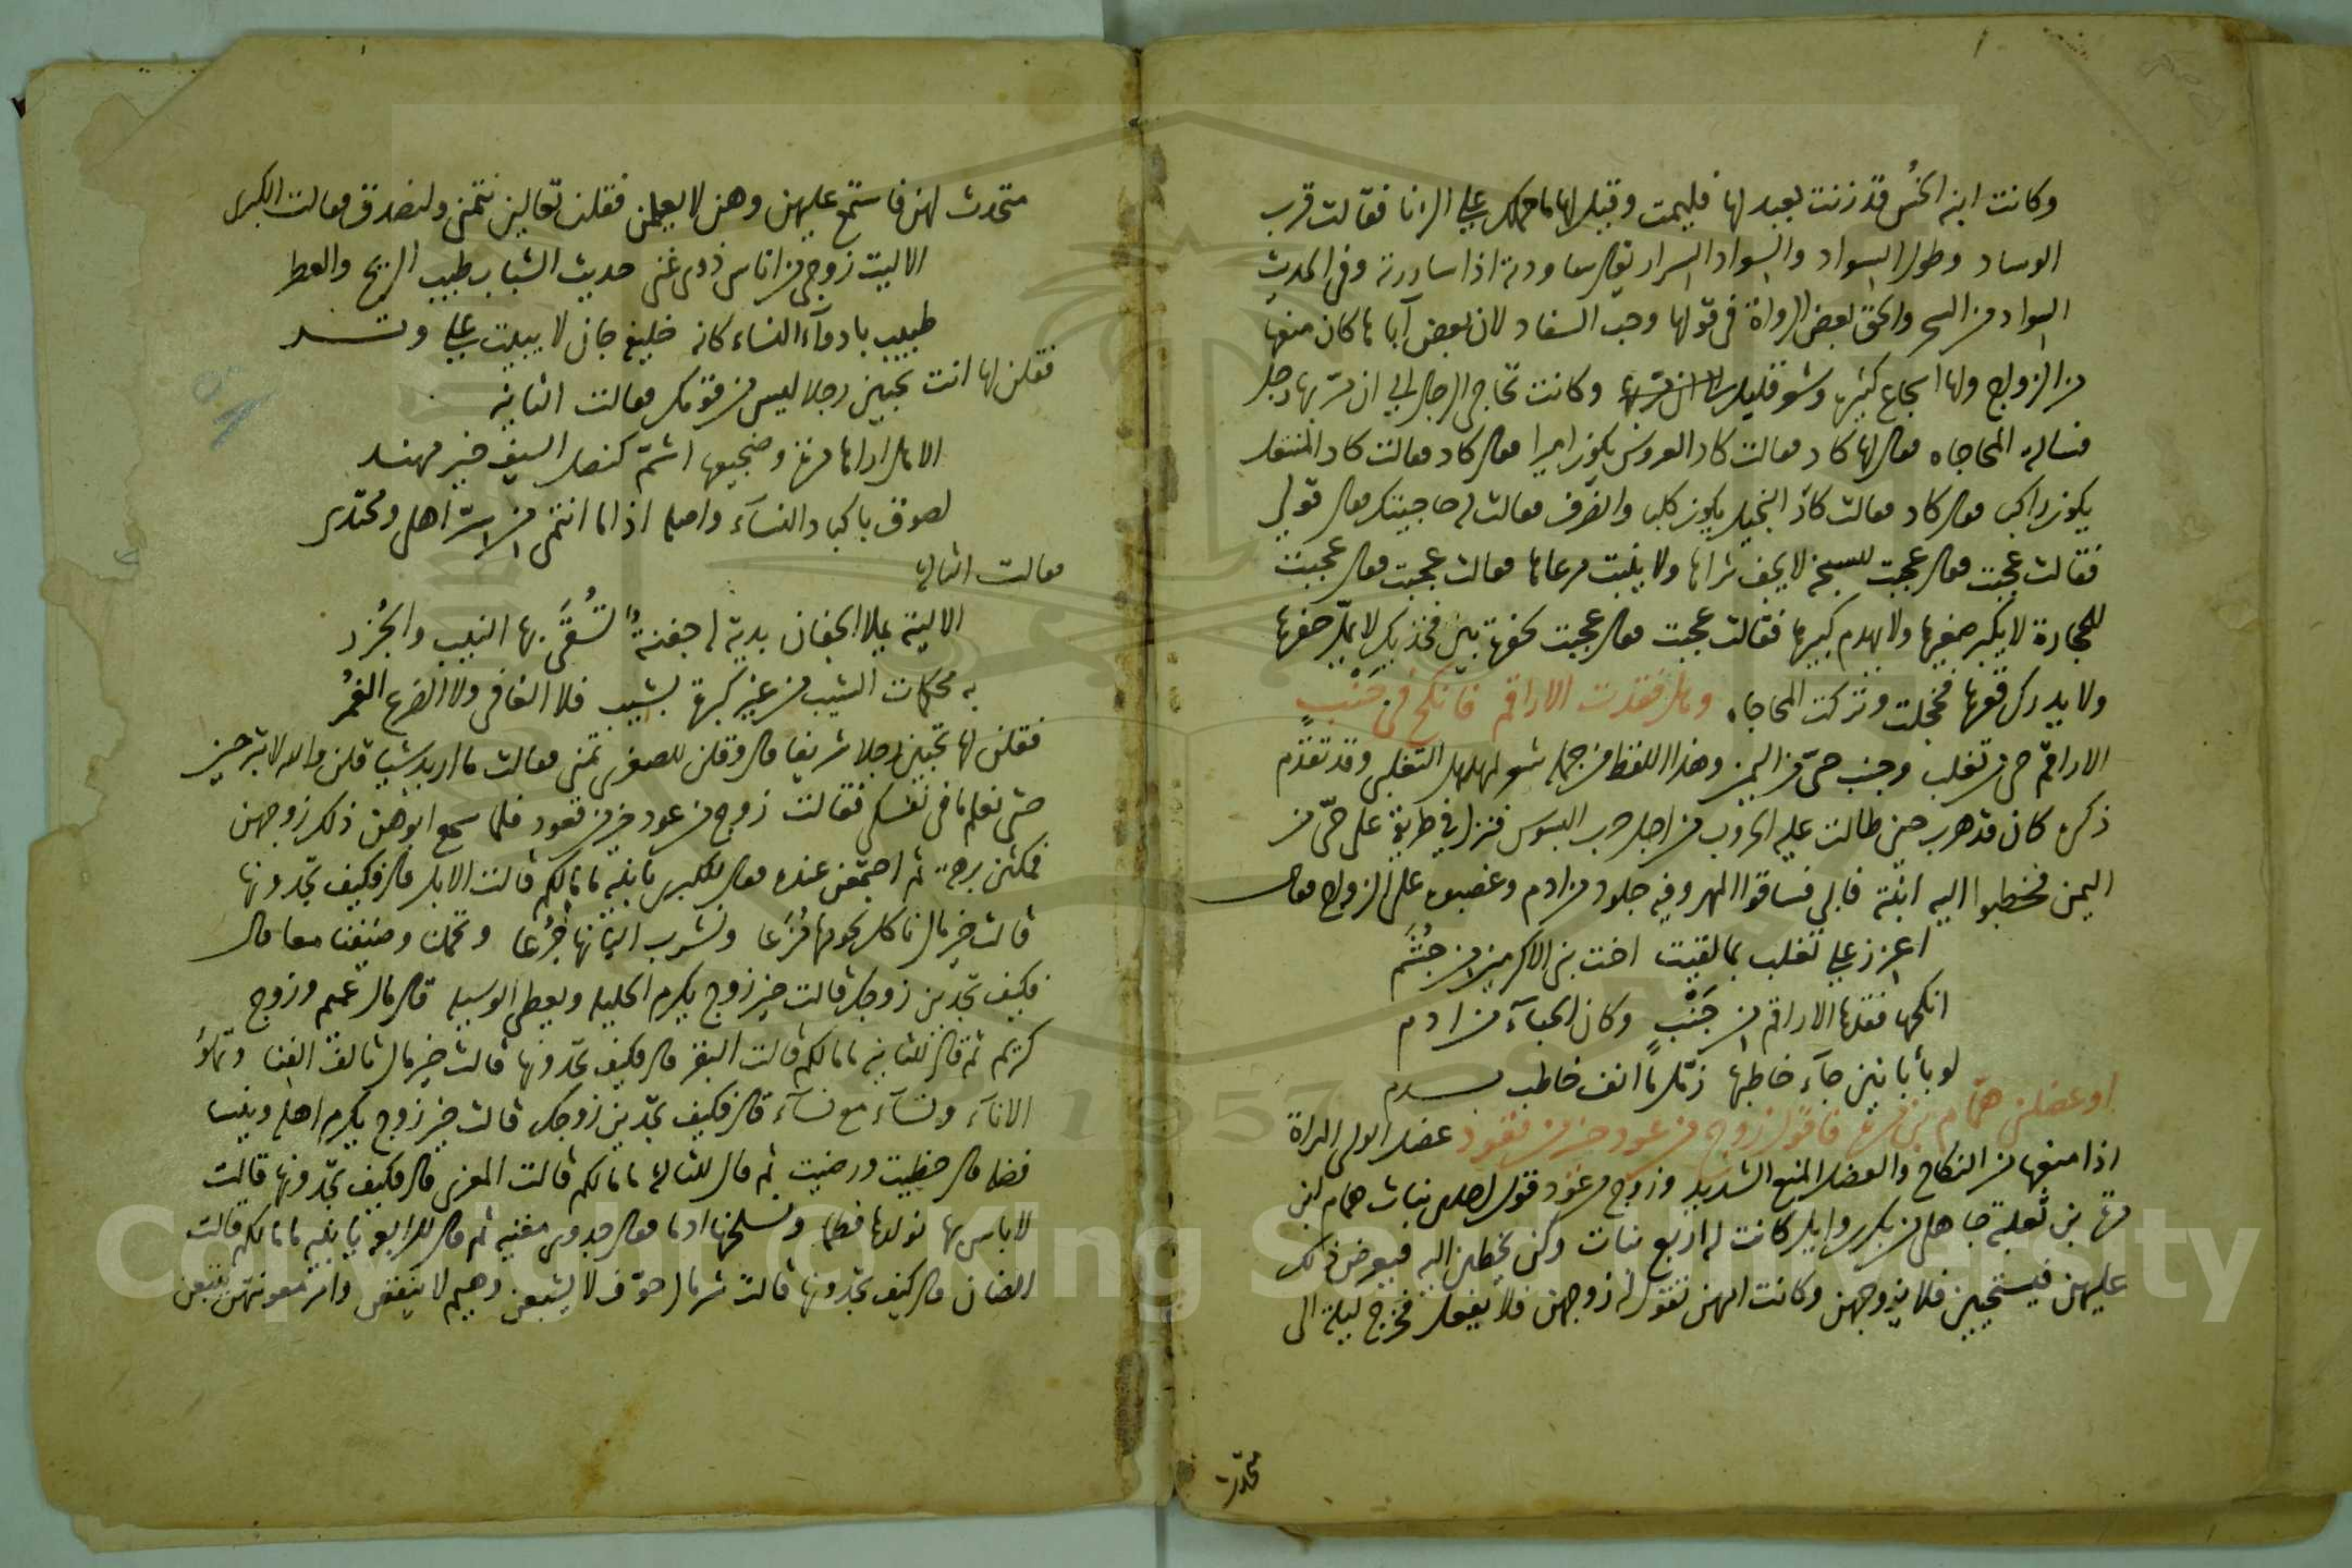 وكانت ابنه الخُس قد زنت بعبد لها فليمت وقيل لها ما حملك على الزنا فقالت قرب
الوساد وطول السواد والسواد السرار يقال ساودته اذا ساررته وفى الحديث
السواد من السحر والحق بعض الرواة فى قولها وحب السفاد لان بعض آبايها كان منعها
من الزواج ولها اسجاع كثيره وشعر قليل وكانت تحاجى الرجال الى ان مر بها رجل
فسالته المحاجاه فقال لها كاد فقالت كاد العروس يكون اميرا فقال كاد فقالت كاد المنتعل
يكون راكبا فقال كاد فقالت كاد البخيل يكون كلبا وانصرف فقالت له حاجيتك فقال قولى
فقالت عجبت فقال عجبت للسبخه لا يجف ثراها ولا ينبت مرعاها فقالت عجبت فقال عجبت
للحجارة لا يكبر صغيرها ولا يهرم كبيرها فقالت عجبت فقال عجبت لحفرة بين فخذيك لا يمل حفرها
ولا يدرك قعرها فخجلت وتركت المحاجاه وهل فقدت الاراقم فانكح فى جَنْبٍ
الاراقم حى من تغلب وجنب حىّ من اليمن وهذا اللفظ من جمله شعر لمهلهل التغلبى وقد تقدم
ذكره كان قد هرب حين طالت عليه الحروب من اجل حرب البسوس فنزل فى طريقه على حىّ من
اليمن فخطبوا اليه ابنته فابى فساقوا المهر وفيه جلود من ادم وغصبوه على الزواج فقال
اعزز على تغلب بما لقيت اخت بنى الاكرمين من جُشَم
انكحها فقدها الاراقم من جَنْبٍ وكان الحبآء من ادم
لو بأبانين جآء خاطبها زمّل ما انف خاطب بدم
او عضلنى همّام بن مرة فاقول زوج من عود خير من قعود عضل الولى المراة
اذا منعها من النكاح والعضل المنع الشديد وزوج من عود قول احدى بنات همام ابن
مرة بن ثعلبة جاهلى من بكر وايل كانت له اربع بنات وكن يخطبن اليه فيعرض ذلك
عليهن فيستحيين فلا يزوجهن وكانت امهن تقول له زوجهن فلا يفعل فخرج ليلة الى
متحدث
متحدث لهن فاستمع عليهن وهن لا يعلمن فقلن تعالين نتمنى ولنصدق فقالت الكبرى
الا ليت زوجى من اناس ذوى غنى حديث الشباب طيب الريح والعطر
طبيب بادوآء النساء كانه خليفة جان لا يبيت على وتر
فقلن لها انت تحبين رجلا ليس من قومك فقالت الثانيه
الا هل اراها مرة وضجيعها اشمّ كنصل السيف غير مهند
لصوق باكباد النسآء واصله اذا ما انتمى من سر اهلى ومحتدى
فقالت الثالثه
الا ليته يملا الجفان بديّة له جفنةٌ تشقى بها النيب والجزر
به محكمات الشيب من غير كبرة تشيب فلا الفانى ولا الضرع الغمر
فقلن لها تحبين رجلا شريفا قال وقلن للصغرى تمنى فقالت ما اريد شيا قلن والله لا تبرحين
حتى نعلم ما فى نفسك فقالت زوج من عود خير من قعود فلما سمع ابوهن ذلك زوجهن
فمكثن برهة ثم اجتمعن عنده فقال للكبرى يا بنيه ما مالكم قالت الابل قال فكيف تجدونها
قالت خير مال ناكل لحومها مُزَعا ونشرب البانها جُرَعا وتحملنا وضيفنا معا قال
فكيف تجدين زوجك قالت خير زوج يكرم الحليله ويعطى الوسيله قال مال عميم وزوج
كريم ثم قال للثانيه ما مالكم قالت البقر قال فكيف تجدونها قالت خير مال تالف الفنا وتملؤ
الانآء ونسآء مع نسآء قال فكيف تجدين زوجك قالت خير زوج يكرم اهله وينسى
فضله قال حظيت ورضيت ثم قال للثالثه ما مالكم قالت المعزى قال فكيف تجدونها قالت
لا باس بها نولدها فطما ونسلخها ادما فقال جدوى مغنيه ثم قال للرابعه يا بنيه ما مالكم قالت
الضان قال كيف تجدونها قالت شر مال جوف لا يشبعن وهيم لا ينقعن وامر مغويتهن يتبعن